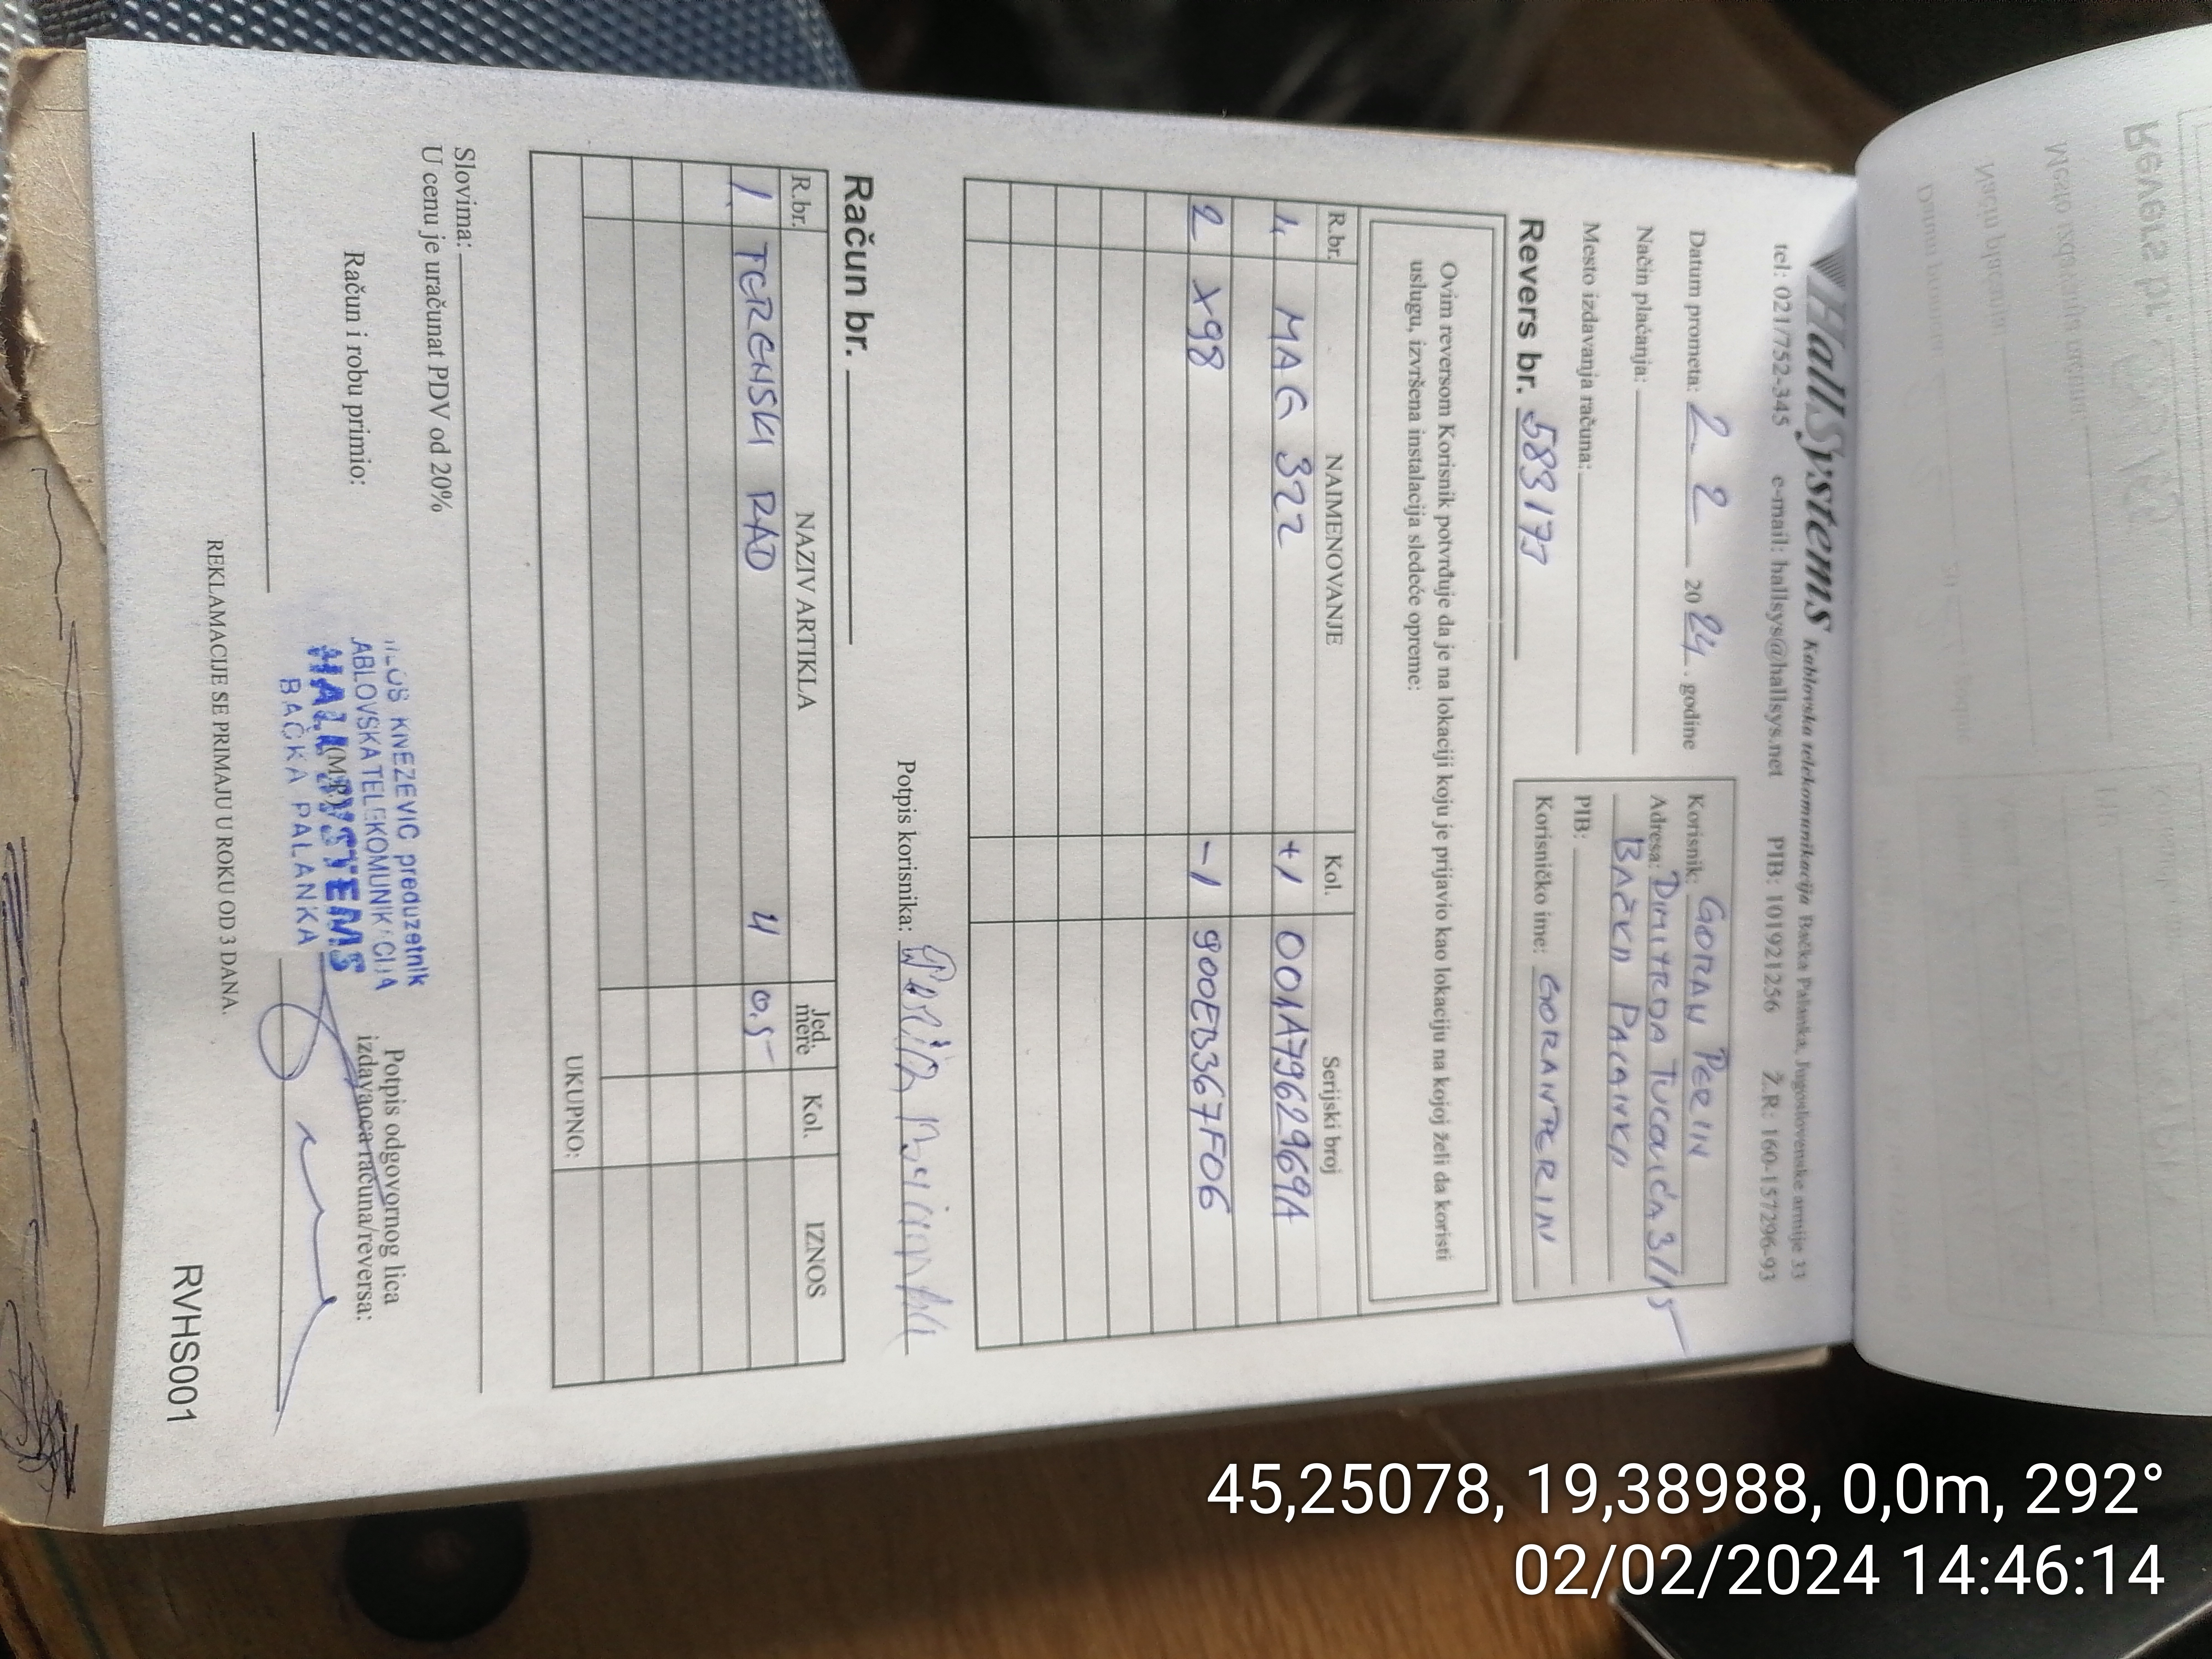 HallSystems Kablovska telekomunikacija Bačka Palanka, Jugoslovenske armije 33
tel: 021/752-345 e-mail: hallsys@hallsys.net PIB: 101921256 Ž.R: 160-157296-93
Datum prometa: 2 2 2024. godine
Način plaćanja:
Mesto izdavanja računa:
Revers br. 583177
Korisnik: GORAN PERIN
Adresa: DIMITRDA TUCOVIĆA 3/15
BAČKA PALANKA
PIB:
Korisničko ime: GORANPERIN
Ovim reversom Korisnik potvrđuje da je na lokaciji koju je prijavio kao lokaciju na kojoj želi da koristi
uslugu, izvršena instalacija sledeće opreme:
R.br. NAIMENOVANJE Kol. Serijski broj
1, MAG 322 +1 001A7962969A
2 X98 -1 900EB367F06
Potpis korisnika:
Račun br.
R.br. NAZIV ARTIKLA Jed. mere Kol. IZNOS
1. TERENSKI RAD 4 0.5-
UKUPNO:
Slovima:
U cenu je uračunat PDV od 20%
Račun i robu primio:
(M.P.)
Potpis odgovornog lica
izdavaoca računa/reversa:
KNEZEVIC preduzetnik
ABLOVSKA TELEKOMUNIKACIJA
HALL SYSTEMS
BAČKA PALANKA
REKLAMACIJE SE PRIMAJU U ROKU OD 3 DANA.
RVHS001
45,25078, 19,38988, 0,0m, 292°
02/02/2024 14:46:14